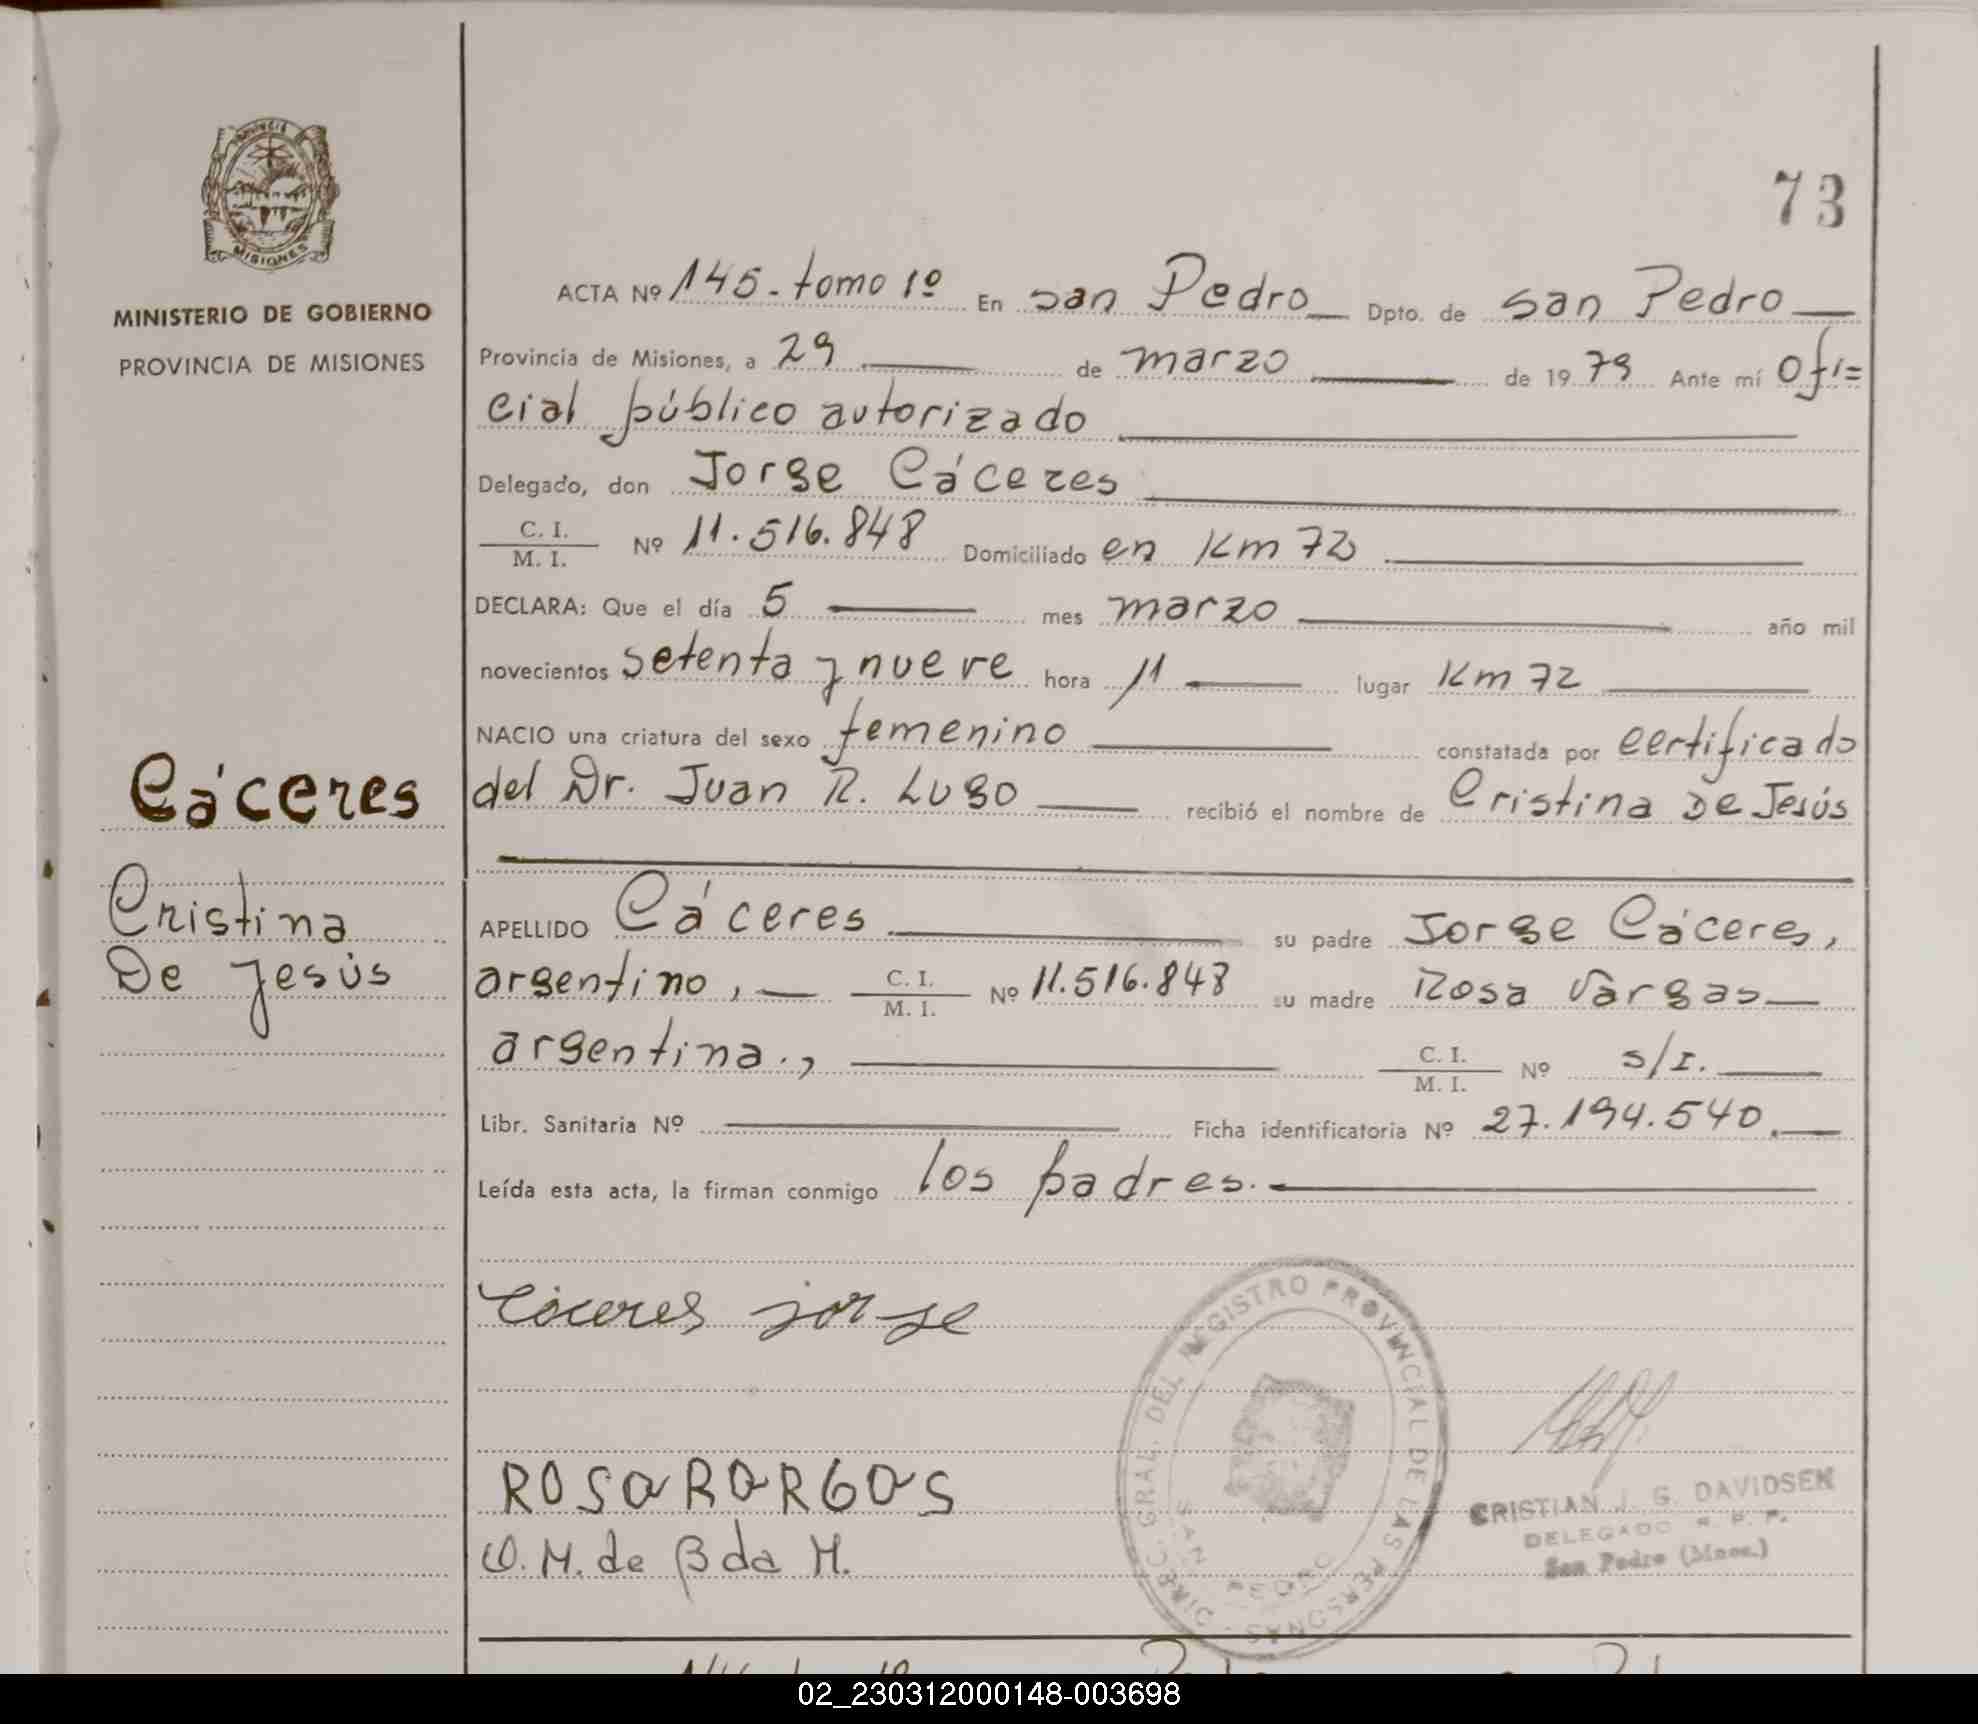 PROVINCIA
MISIONES
MINISTERIO DE GOBIERNO
PROVINCIA DE MISIONES
Cáceres
Cristina
De Jesús
73
ACTA Nº 145-tomo 1º En san Pedro Dpto. de san Pedro
Provincia de Misiones, a 29 de marzo de 1979 Ante mí Ofi=
cial público autorizado
Delegado, don Jorge Cáceres
C. I.
M. I. Nº 11.516.848 Domiciliado en Km 72
DECLARA: Que el día 5 mes marzo año mil
novecientos setenta y nueve hora 11 lugar Km 72
NACIO una criatura del sexo femenino constatada por certificado
del Dr. Juan R. Lugo recibió el nombre de Cristina De Jesús
APELLIDO Cáceres su padre Jorge Cáceres,
argentino, C. I.
M. I. Nº 11.516.848 su madre Rosa Vargas
argentina., C. I.
M. I. Nº s/I.
Libr. Sanitaria Nº Ficha identificatoria Nº 27.194.540.
Leída esta acta, la firman conmigo los padres.
Cáceres jorge
ROSA RARGAS
O.M. de B da M.
DIREC. GRAL. DEL REGISTRO PROVINCIAL DE LAS PERSONAS
SAN PEDRO
CRISTIAN J. G. DAVIDSEN
DELEGADO R. P. P.
San Pedro (Mnes.)
02_230312000148-003698